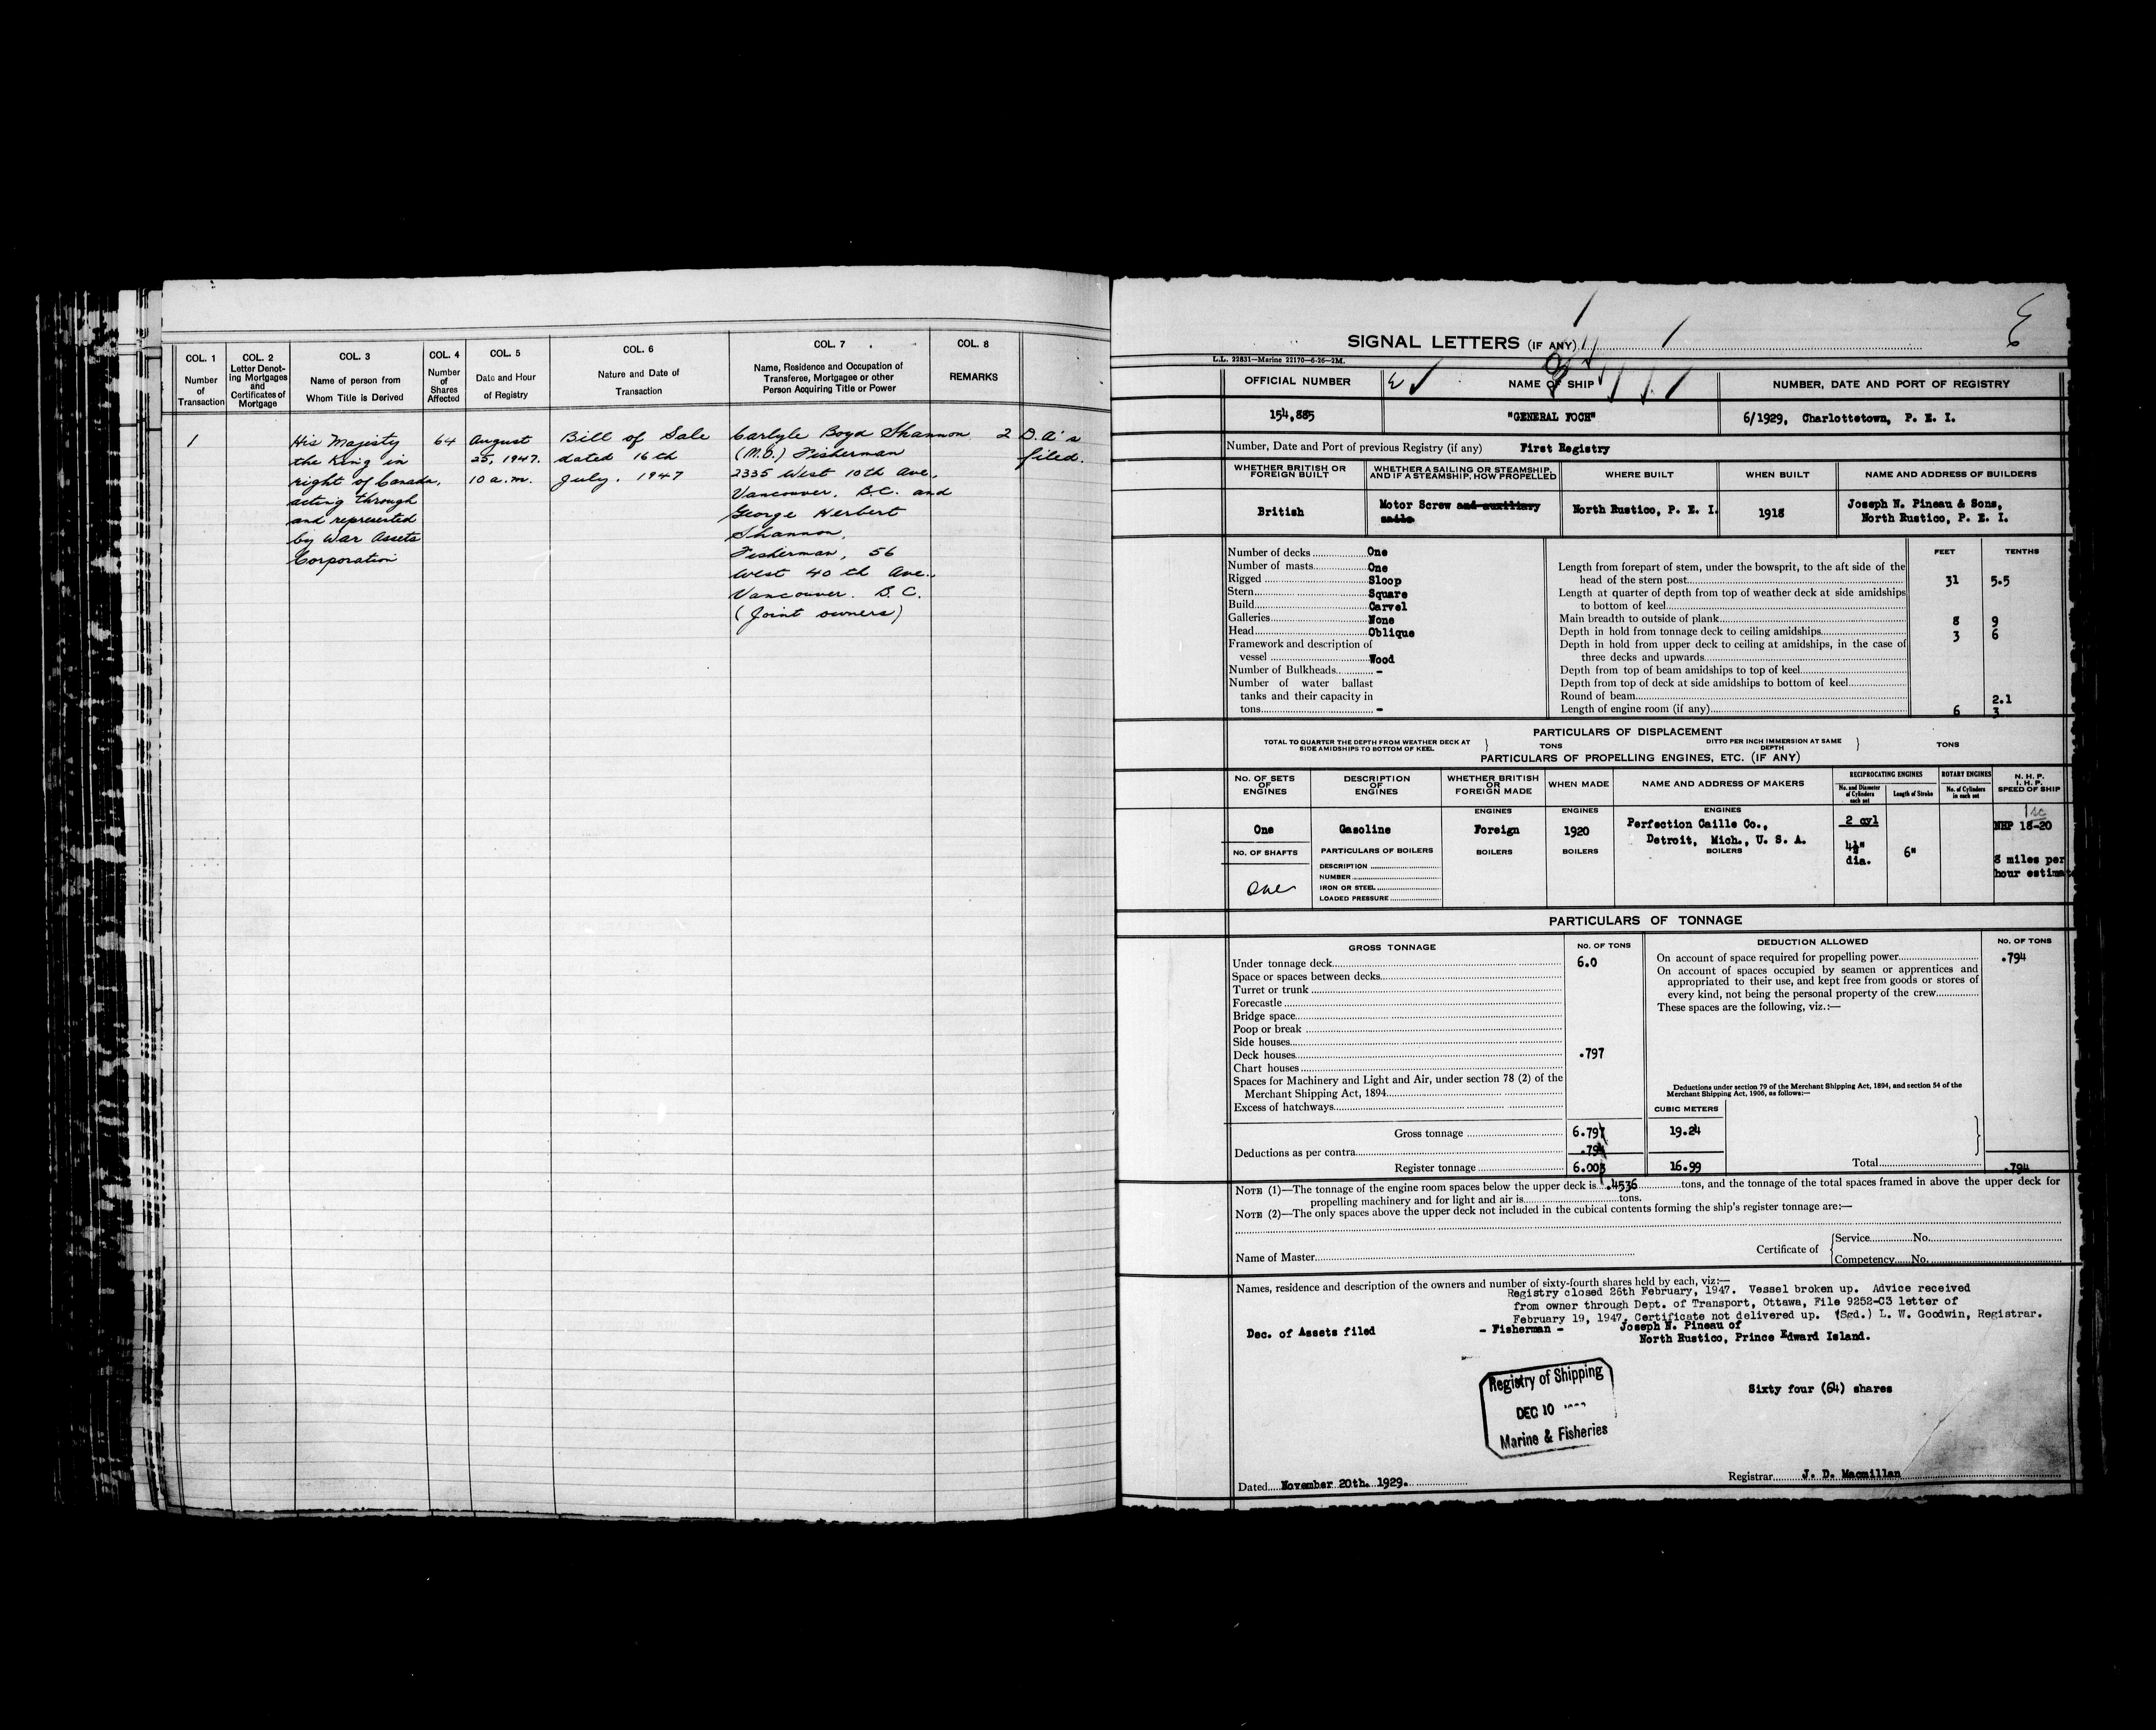 COL. 1
Number
of
Transaction
COL. 2
Letter Denot-
ing Mortgages
and
Certificates of
Mortgage
COL. 3
Name of person from
Whom Title is Derived
COL. 4
Number
of
Shares
Affected
COL. 5
Date and Hour
of Registry
COL. 6
Nature and Date of
Transaction
COL. 7
Name, Residence and Occupation of
Transferee, Mortgagee or other
Person Acquiring Title or Power
COL. 8
REMARKS
1
His Majesty
the King in
right of Canada,
acting through
and represented
by War Assets
Corporation
64
August
25, 1947.
10 a.m.
Bill of Sale
dated 16th
July, 1947
Carlyle Boyd Shannon
(M.O.) Fisherman
2335 West 10th Ave.,
Vancouver, B.C. and
George Herbert
Shannon,
Fisherman, 56
West 40th Ave.,
Vancouver. B.C.
(Joint owners)
2 D.A's
filed.
SIGNAL LETTERS (IF ANY)
L.L. 22831—Marine 22170—6-26—2M.
OFFICIAL NUMBER
NAME OF SHIP
NUMBER, DATE AND PORT OF REGISTRY
154,885
"GENERAL FOCH"
6/1929, Charlottetown, P. E. I.
Number, Date and Port of previous Registry (if any) First Registry
WHETHER BRITISH OR
FOREIGN BUILT
WHETHER A SAILING OR STEAMSHIP,
AND IF A STEAMSHIP, HOW PROPELLED
WHERE BUILT
WHEN BUILT
NAME AND ADDRESS OF BUILDERS
British
Motor Screw and auxiliary
sails
North Rustico, P. E. I.
1918
Joseph N. Pineau & Sons,
North Rustico, P. E. I.
Number of decks One
Number of masts One
Rigged Sloop
Stern Square
Build Carvel
Galleries None
Head Oblique
Framework and description of
vessel Wood
Number of Bulkheads -
Number of water ballast
tanks and their capacity in
tons -
FEET TENTHS
Length from forepart of stem, under the bowsprit, to the aft side of the
head of the stern post 31 5.5
Length at quarter of depth from top of weather deck at side amidships
to bottom of keel
Main breadth to outside of plank 8 9
Depth in hold from tonnage deck to ceiling amidships 3 6
Depth in hold from upper deck to ceiling at amidships, in the case of
three decks and upwards
Depth from top of beam amidships to top of keel
Depth from top of deck at side amidships to bottom of keel
Round of beam 2.1
Length of engine room (if any) 6 3
PARTICULARS OF DISPLACEMENT
TOTAL TO QUARTER THE DEPTH FROM WEATHER DECK AT
SIDE AMIDSHIPS TO BOTTOM OF KEEL
TONS
DITTO PER INCH IMMERSION AT SAME
DEPTH
TONS
PARTICULARS OF PROPELLING ENGINES, ETC. (IF ANY)
NO. OF SETS
OF
ENGINES
DESCRIPTION
OF
ENGINES
WHETHER BRITISH
OR
FOREIGN MADE
WHEN MADE
NAME AND ADDRESS OF MAKERS
RECIPROCATING ENGINES
No. and Diameter
of Cylinders
each set
Length of Stroke
ROTARY ENGINES
No. of Cylinders
in each set
N. H. P.
I. H. P.
SPEED OF SHIP
ENGINES
ENGINES
ENGINES
One
Gasoline
Foreign
1920
Perfection Caille Co.,
Detroit, Mich., U. S. A.
2 cyl
4½"
dia.
6"
NHP 18-20
8 miles per
hour estimate
NO. OF SHAFTS
One
PARTICULARS OF BOILERS
DESCRIPTION
NUMBER
IRON OR STEEL
LOADED PRESSURE
BOILERS
BOILERS
BOILERS
PARTICULARS OF TONNAGE
GROSS TONNAGE
NO. OF TONS
DEDUCTION ALLOWED
NO. OF TONS
Under tonnage deck 6.0
Space or spaces between decks
Turret or trunk
Forecastle
Bridge space
Poop or break
Side houses
Deck houses .797
Chart houses
Spaces for Machinery and Light and Air, under section 78 (2) of the
Merchant Shipping Act, 1894
Excess of hatchways
Gross tonnage 6.797
Deductions as per contra .794
Register tonnage 6.003
On account of space required for propelling power .794
On account of spaces occupied by seamen or apprentices and
appropriated to their use, and kept free from goods or stores of
every kind, not being the personal property of the crew
These spaces are the following, viz.:—
Deductions under section 79 of the Merchant Shipping Act, 1894, and section 54 of the
Merchant Shipping Act, 1906, as follows:—
CUBIC METERS
19.24
16.99
Total .794
NOTE (1)—The tonnage of the engine room spaces below the upper deck is .4536 tons, and the tonnage of the total spaces framed in above the upper deck for
propelling machinery and for light and air is tons.
NOTE (2)—The only spaces above the upper deck not included in the cubical contents forming the ship's register tonnage are:—
Name of Master
Certificate of
Service No.
Competency No.
Names, residence and description of the owners and number of sixty-fourth shares held by each, viz:—
Registry closed 26th February, 1947. Vessel broken up. Advice received
from owner through Dept. of Transport, Ottawa, File 9252-C3 letter of
February 19, 1947. Certificate not delivered up. (Sgd.) L. W. Goodwin, Registrar.
Dec. of Assets filed
- Fisherman -
Joseph N. Pineau of
North Rustico, Prince Edward Island.
Registry of Shipping
DEC 10
Marine & Fisheries
Sixty four (64) shares
Dated November 20th. 1929.
Registrar J. D. Macmillan